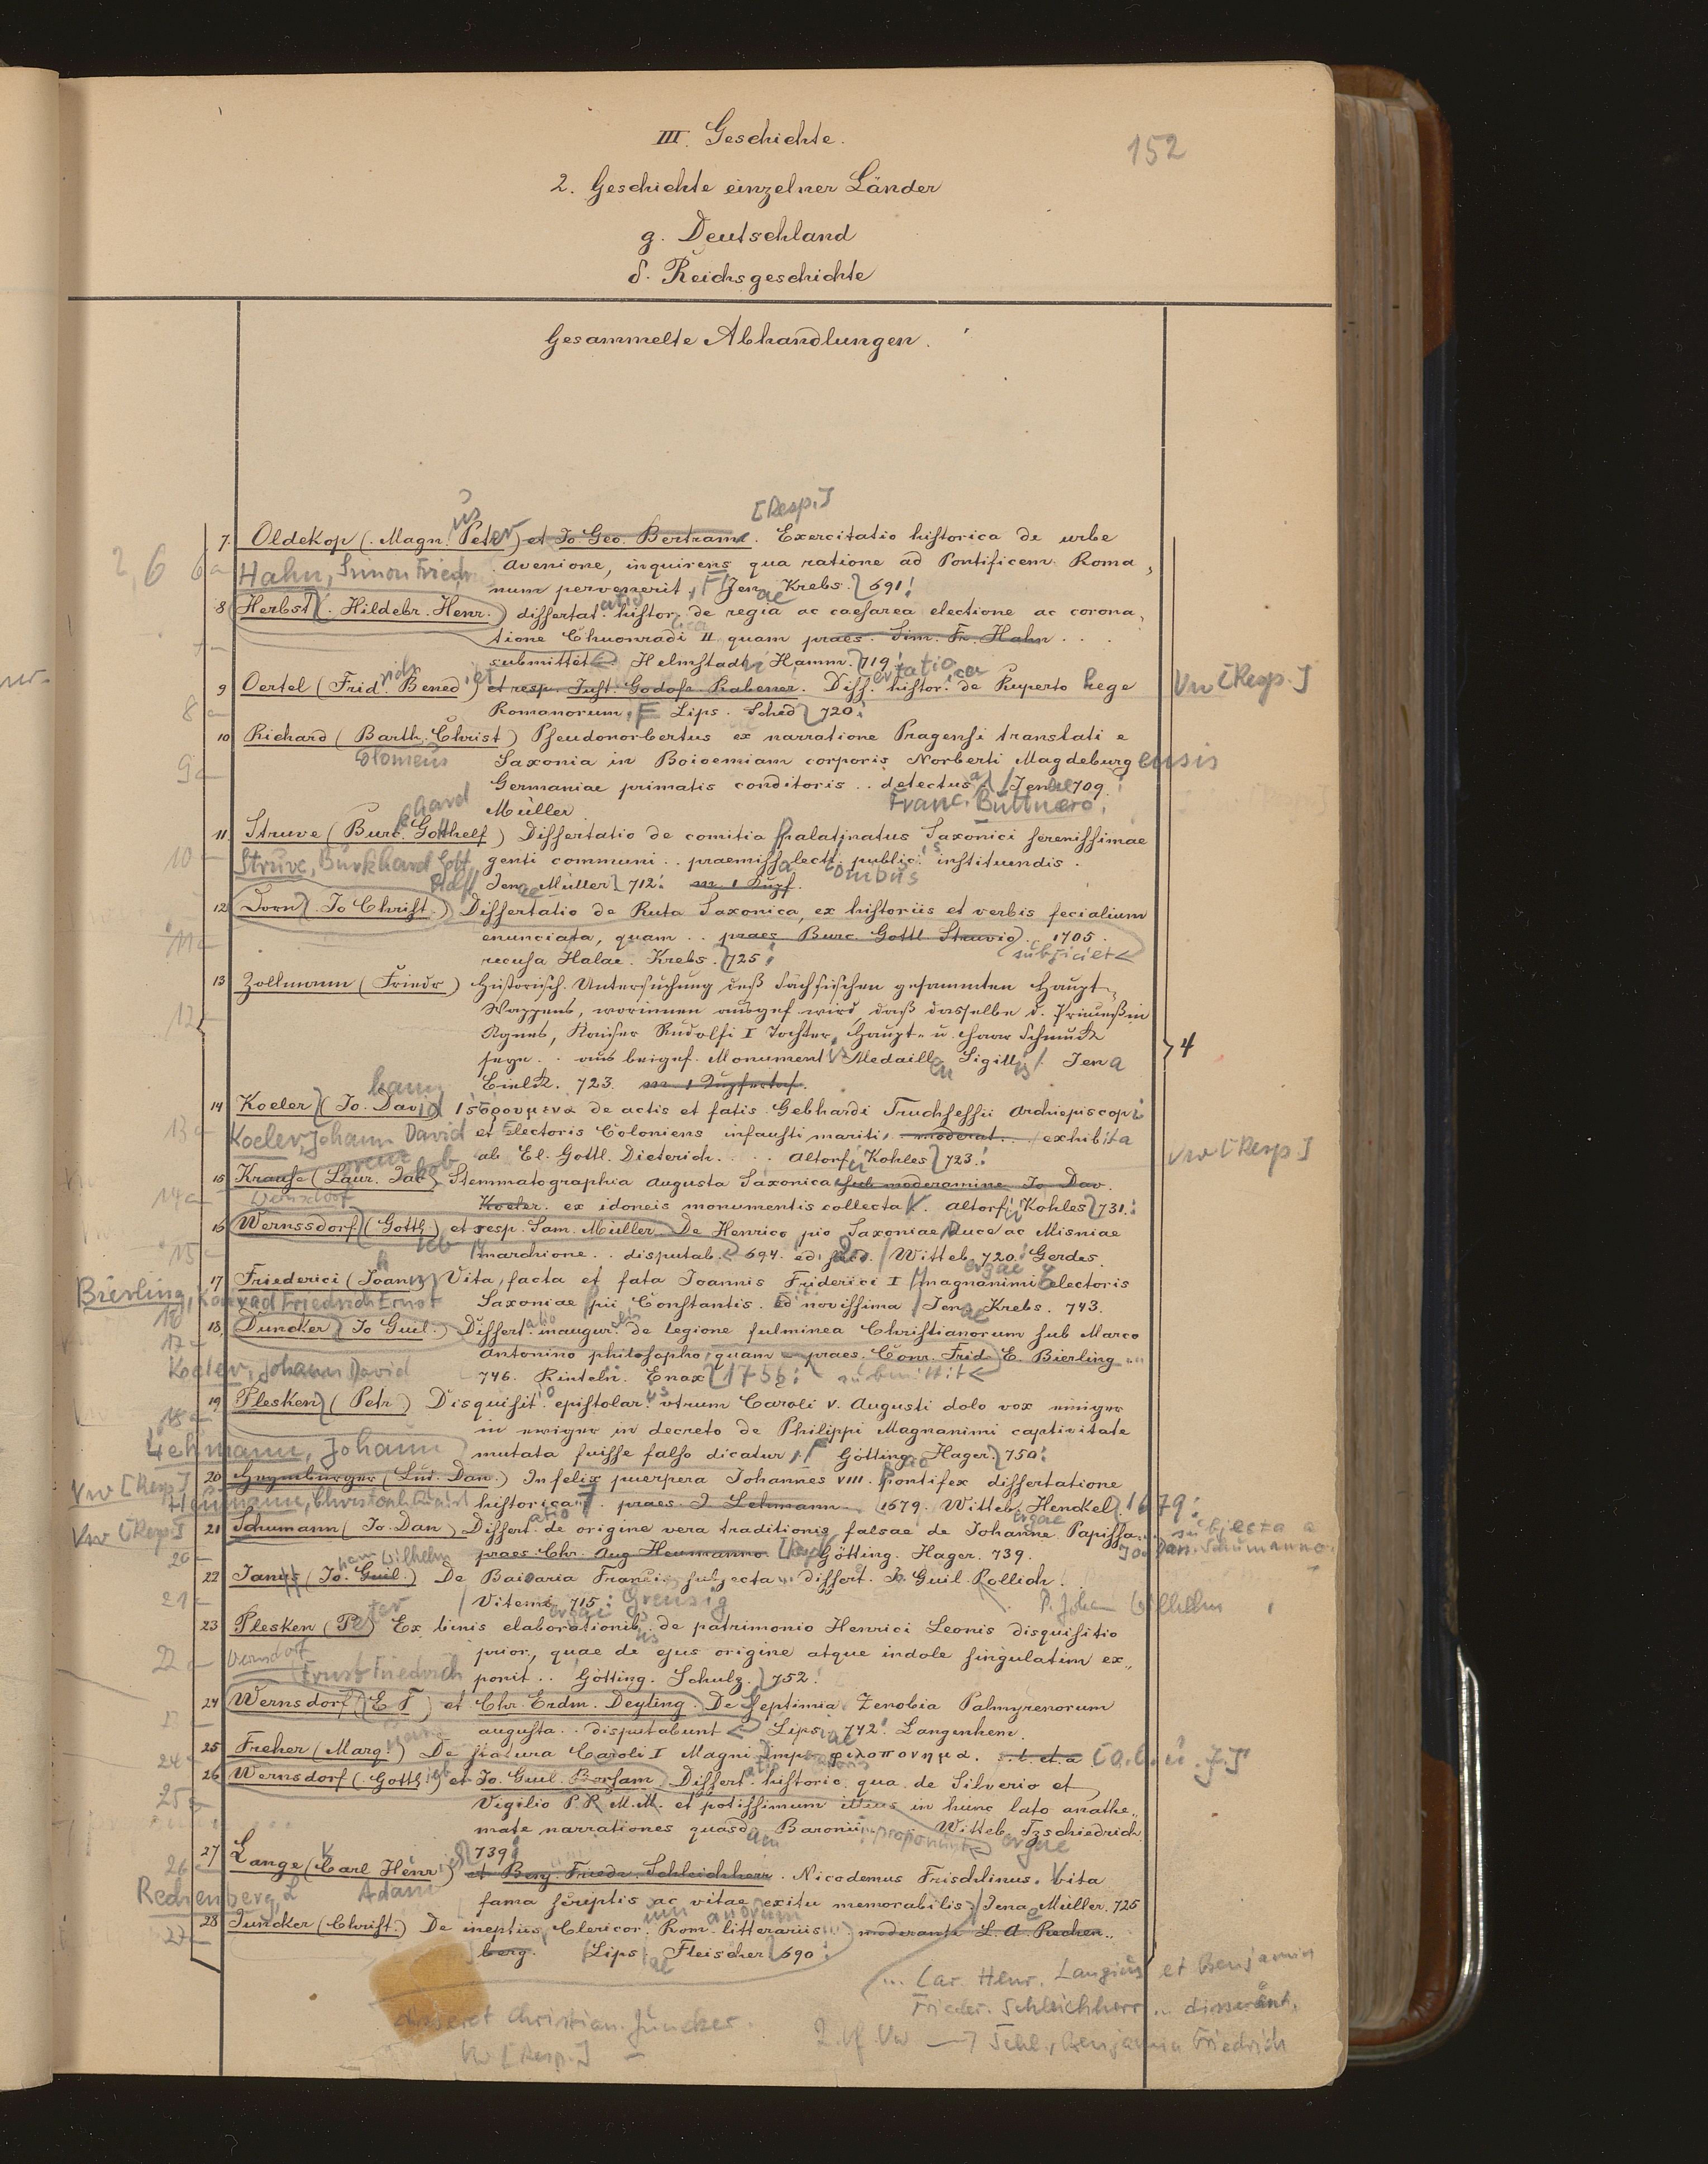 III. Geschichte.
152
2. Geschichte einzelner Länder
g. Deutschland
δ. Reichsgeschichte
Gesammelte Abhandlungen.
[Resp.]
7. Oldekop (Magn. Peter) et Jo Geo. Bertram. Exercitatio historica de urbe
Avenione, inquirens qua ratione ad Pontificem Roma,
Hahn, Simon Friedr
num pervenerit, Jenae Krebs. 691.
8 Herbst (Hildebr. Henr.) dissertat. histor. de regia ac caesarea electione ac corona,
tione Chuonradi II quam praes. Sim. Fr. Hahn . . .
submittet Helmstadi, Hamm. 719.
9 Oertel (Frid. Bened.) et resp. Just. Godofr. Rabener. Diss. histor. de Ruperto Rege
Vw [Resp.]
Romanorum, Lips. Sched 720.
10 Richard (Barth. Christ) Pseudonorbertus ex narratione Pragensi translati e
Saxonia in Boioemiam corporis Norberti Magdeburgensis
Germaniae primatis conditoris .. detectus a Jenae 709.
Franc. Büttnero.
Müller
11. Struve (Burc. Gotthelf) Dissertatio de comitia palatinatus Saxonici serenissimae
genti communi .. praemissa lect. public. instituendis.
Struve, Burkhard Gott
helf
Jenae Müller 712. m. 1 Kupf.
12 Dorn (Jo Christ.) Dissertatio de Ruta Saxonica, ex historiis et verbis fecialium
enunciata, quam .. praes Burc. Gottl Struvio . 1705.
subjiciet
recusa Halae. Krebs. 725.
13 Zollmann (Friedr) Historisch. Untersuchung deß Sächsischen gesammten Haupt-
Wappens, worinnen ausgef. wird, daß dasselbe d. Princeßin
Agnes, Kayser Rudolfi I Tochter, Haupt- u. Haar Schmuck
seye .. aus beigef. Monument. Medaillen Sigill. Jena
4
723. m. 1 Kupfertaf.
14 Koeler (Jo. David) ἱστορουμενα de actis et fatis Gebhardi Truchsessii Archiepiscopi
Koeler, Johann David
et Electoris Coloniens infausti mariti, moderat... exhibita
ab El. Gottl. Dieterich. . . . Altorfii Kohles 723.
Vw [Resp.]
15 Krause (Laur. Jak) Stemmatographia Augusta Saxonica sub moderamine Jo Dav.
Koeler. ex idoneis monumentis collecta. Altorfii Kohles 731.
Wernsdorf
16 Wernssdorf (Gottl.) et resp. Sam. Müller De Henrico pio Saxoniae Duce ac Misniae
marchione .. disputab. 694. ed. Witteb. 720. Gerdes.
17 Friederici (Joann) Vita, facta et fata Joannis Friderici I magnanimi Electoris
Bierling, Konrad Friedrich Ernst
Saxoniae pii, Constantis. Ed novissima Jenae Krebs. 743.
18. Duncker (Jo Guil.) Dissert. inaugur. de legione fulminea Christianorum sub Marco
Antonino philosopho, quam praes. Conr. Frid. E. Bierling
Koeler, Johann David
746. Rinteln. Enax 1756. submittit
19 Plesken (Petr.) Disquisit. epistolar. utrum Caroli V. Augusti dolo vox einiger
in ewiger in decreto de Philippi Magnanimi captivitate
Lehmann, Johann
mutata fuisse falso dicatur, Götting. Hager. 750.
Vw [Resp.]
20 (Lud. Dan.) Infelix puerpera Johannes VIII. Pontifex dissertatione
historica. praes. J Lehmann. 1679. Witteb. Henckel 1679.
Heumann, Christoph August
Vw [Resp.]
21 Schumann (Jo. Dan) Dissert. de origine vera traditionis falsae de Johanne Papissa..
subjecta a
Jo. Dan. Schumanno
praes. Chr. Aug Heumanno Götting. Hager. 739.
22 Janus (Jo. Guil.) De Baioaria Francis subjecta .. dissert. Jo. Guil. Rollich.
Vitemb. 715. Greusig
P. Johan Wilhelm
23 Plesken (Peter) Ex binis elaborationib. de patrimonio Henrici Leonis disquisitio
prior, quae de ejus origine atque indole singulatim ex,,
Wernsdorf
Ernst Friedrich
ponit .. Götting. Schulz. 752.
24 Wernsdorf (E F) et Chr. Erdm. Deyling. De Septimia Zenobia Palmyrenorum
augusta .. disputabunt Lips. 742. Langenhem.
25 Freher (Marq.) De statura Caroli I Magni Imp. φιλοπονημα. s. l. et a [o. O. u. J.]
26 Wernsdorf (Gottlieb) et Jo. Guil. Borsam. Dissert. historic. qua de Silverio et
Vigilio P. R. M. M. et potissimum illius in hunc lato anathe,,
mate narrationes quasdam Baronii proponunt Witteb. Tzschiedrich
739.
27 Lange (Carl Henr) et Benj. Friedr. Schleichherr. Nicodemus Frischlinus. Vita
Rechenberg, L Adam
fama scriptis ac vitae exitu memorabilis, Jenae Müller. 725
28 Juncker (Christ.) De ineptiis Clericor. Rom. litterariis moderante L. A. Rechen,,
berg. Lips. Fleischer 690.
... Car. Henr. Langius et Benjamin
Frieder. Schleichherr ... disserant.
disseret Christian. Juncker.
Vw [Resp.]
2. Vf. Vw → Schl., Benjamin Friedrich